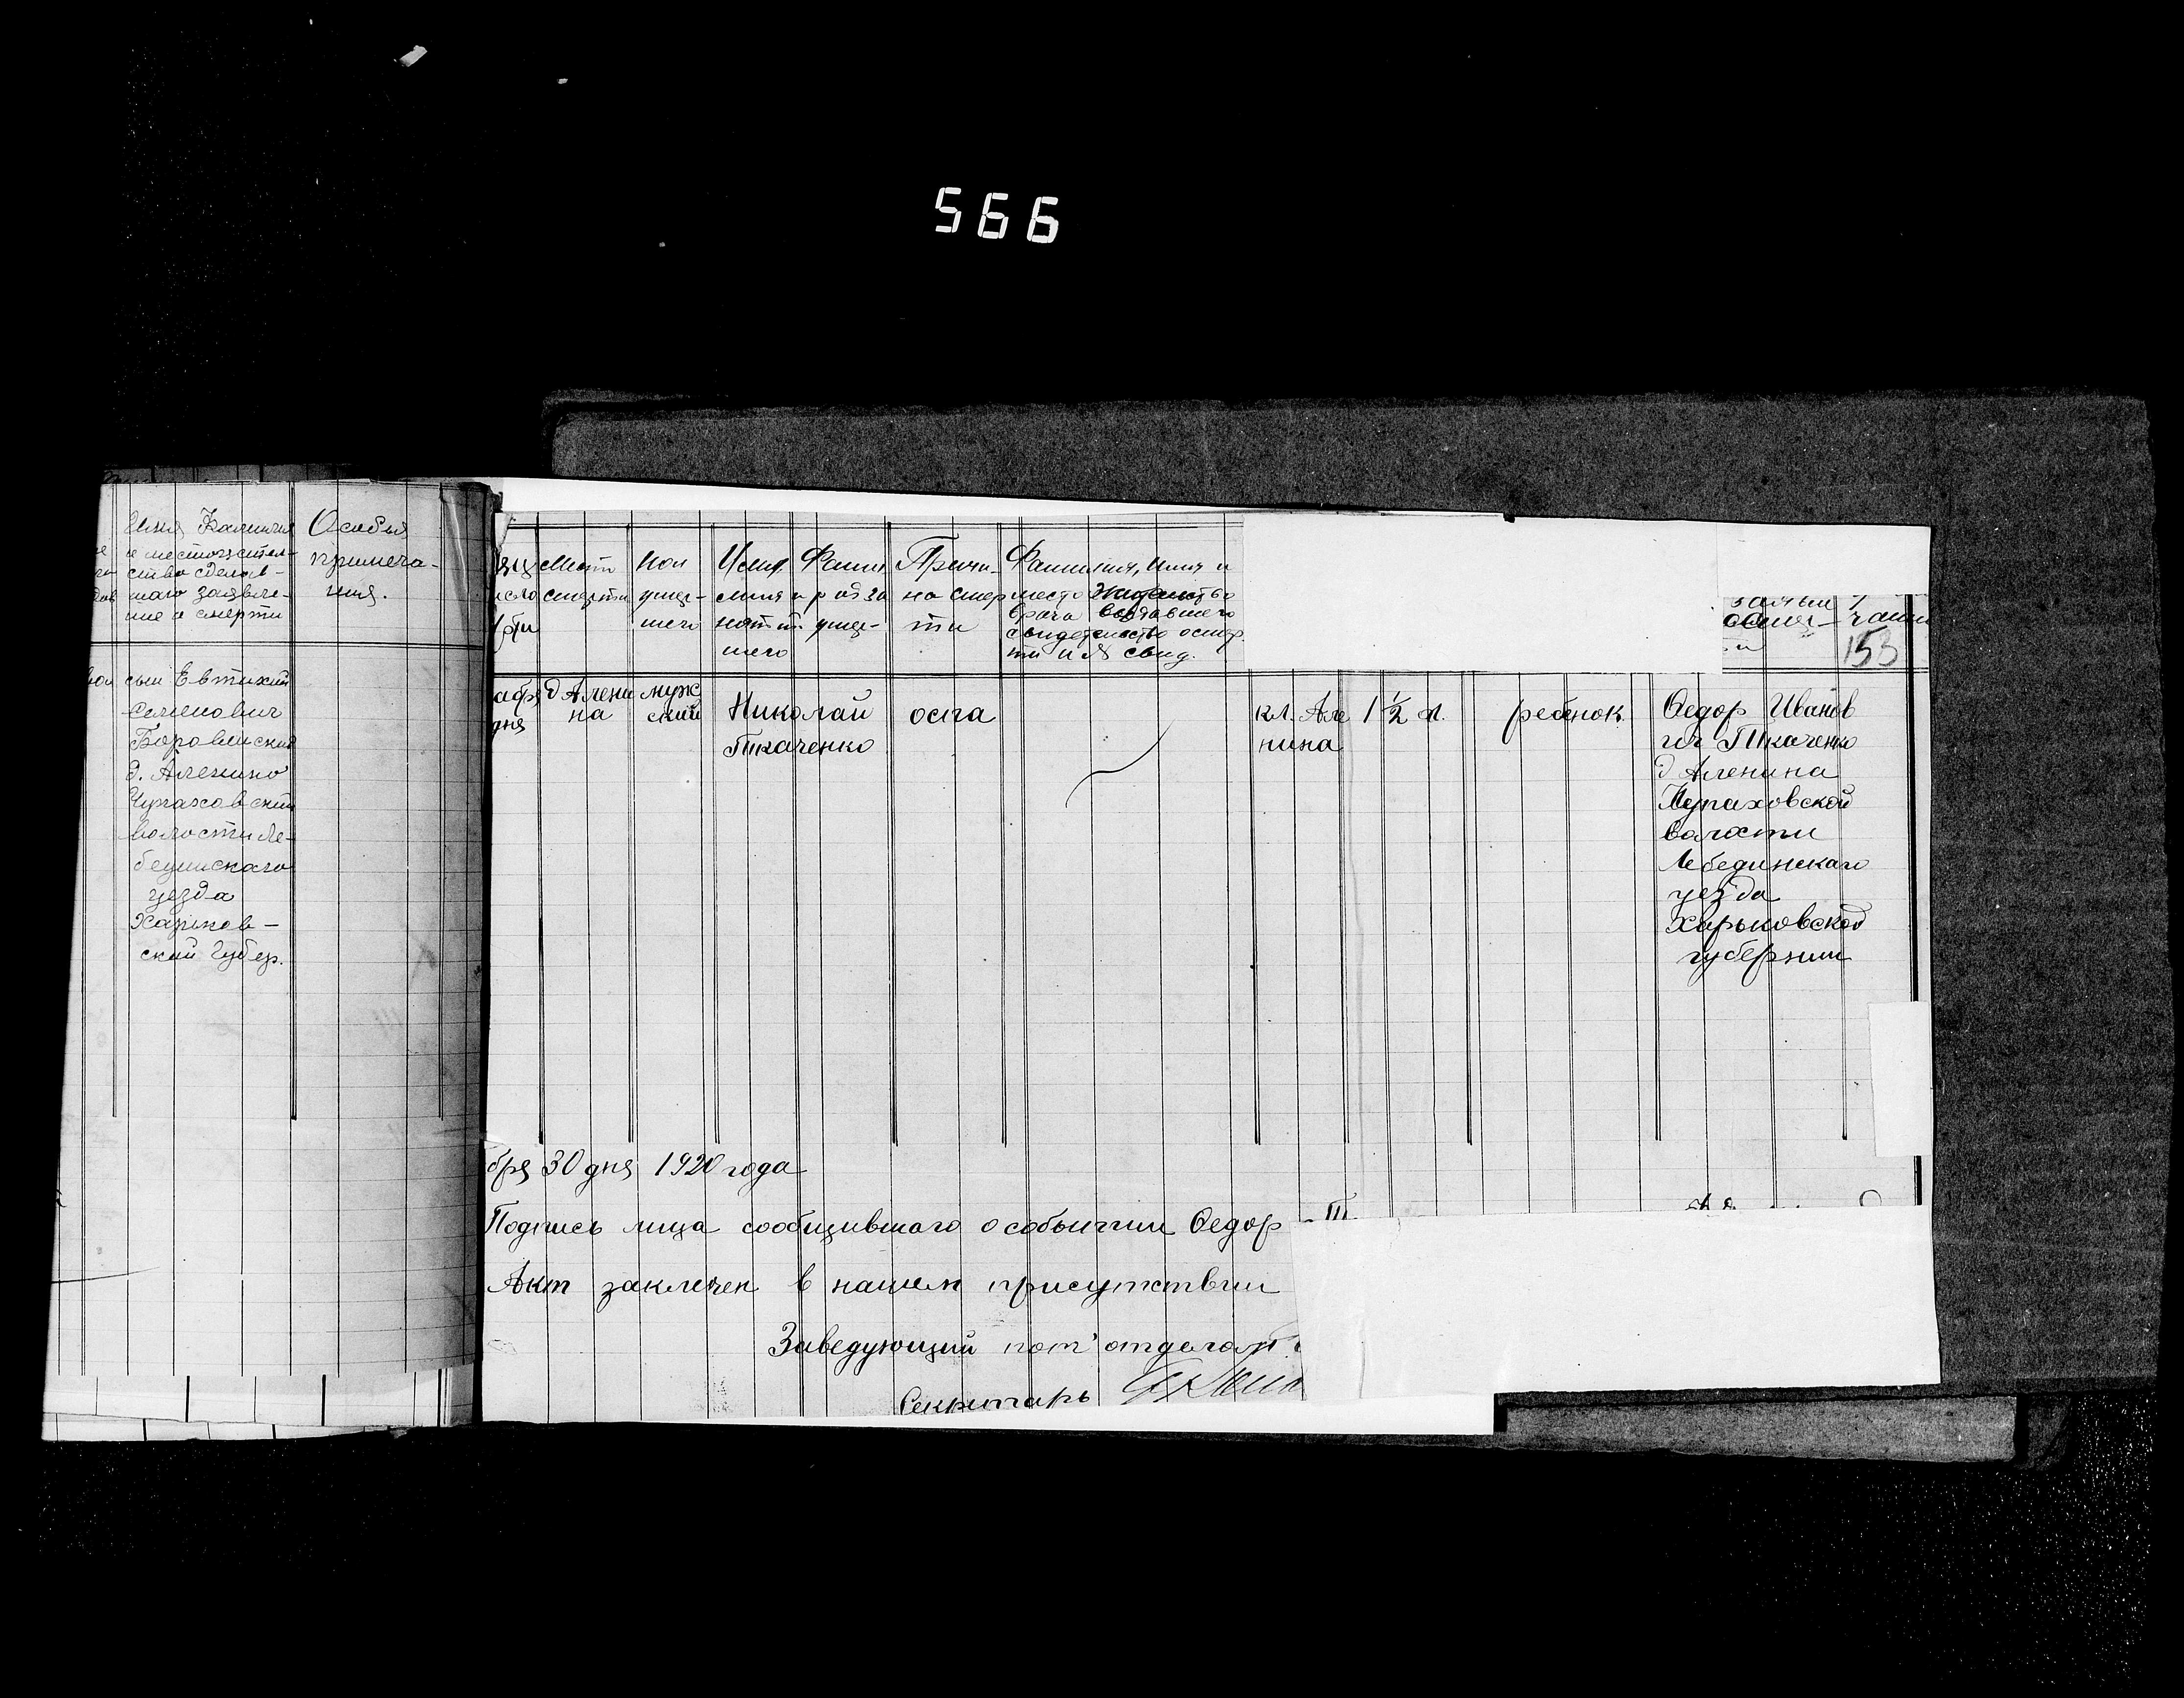 566
Имя Фамилия
и местожител-
ство сделов-
шаго заявле-
ние о смерти
Особыя
примеча-
ния.
сын Евтихий
Семенович
д. Аленино
Чупаховский
волости Ле-
бединскаго
уезда
Харьков-
ский Губер.
Место
смерти
пол
умер-
шего
Имя Фами
лия и род за
нятий умер-
шего
Причи-
на смер
ти
Фамилия, имя и
место
врача
свидетельство о смер
ти и № свид.
153
абря
дня
д Алени
на
муж
ский
Николай
Ткаченко
оспа
кл. Але
нина
1 1/2 л.
ребенок.
Федор Иванов
ич Ткаченко
д Аленина
Чупаховской
волости
Лебединскаго
уезда
Харьковской
губернии
бря 30 дня 1920 года
Подпись лица сообщившаго о событии Федор
Акт заключен в нашем присутствии
Заведующий пот'отделом
Секритарь